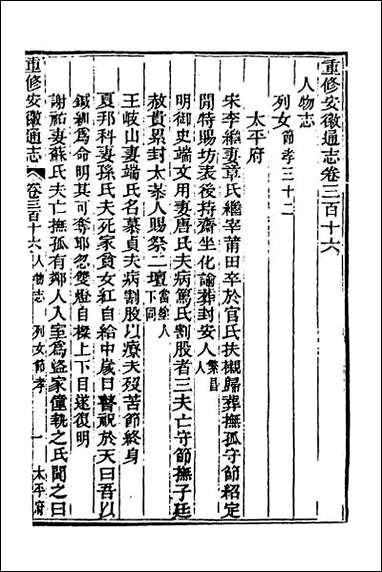 重修安徽通志卷三百十六
人物志
列女節孝三十二
太平府
宋李維妻章氏繼宰莆田卒於官氏扶櫬歸葬撫孤守節紹定
間特賜坊表後持齋坐化諭葬封安人繁昌人
明御史端文用妻唐氏夫病篤氏割股者三夫亡守節撫子廷
赦貴累封太恭人賜祭二壇當塗人下同
王岐山妻端氏名慕貞夫病割股以療夫歿苦節終身
夏邦科妻孫氏夫死家貧女紅自給中歲目瞽祝於天曰吾以
鍼黹為命明其可奪耶忽雙燈自樑上下目遂復明
謝祐妻蘇氏夫亡撫孤有鄰人入室為盜家僮執之氏聞之曰
重修安徽通志
卷三百十六 人物志 列女節孝 一 太平府